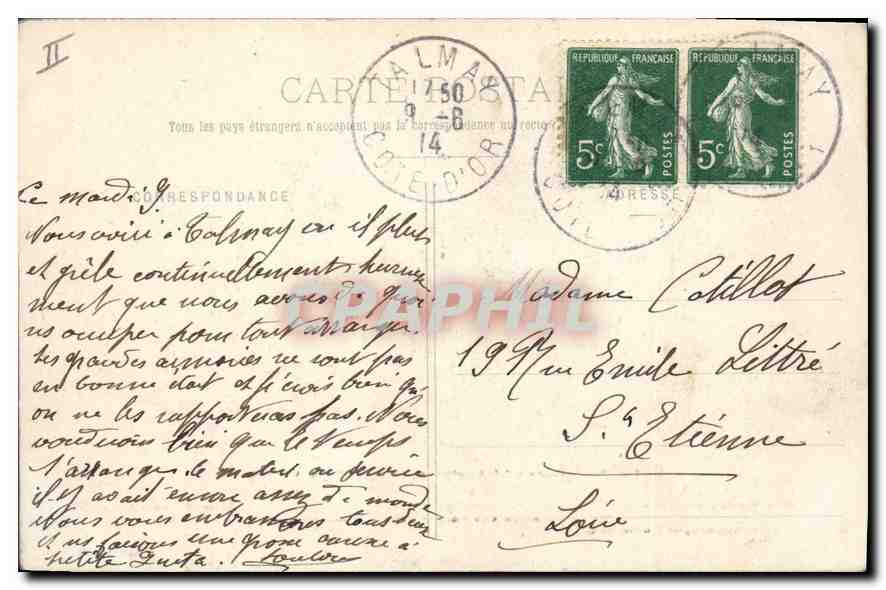 II
CARTE POSTALE
Tous les pays étrangers n'acceptent pas la correspondance au recto
TALMAY
17 50
9 -6
14
COTE D'OR
REPUBLIQUE FRANÇAISE
5c
POSTES
REPUBLIQUE FRANÇAISE
5c
POSTES
CORRESPONDANCE
ADRESSE
Ce mardi 9.
Nous voici à Talmay où il pleut
et gèle continuellement heureuse
ment que nous avons de quoi
ns occuper pour tout arranger.
Les grandes armoires ne sont pas
en bonne état et je crois bien qu'
on ne les rapportera pas. Nous
voudrions bien que le temps
s'arrange. le matin au service
il y avait encore assez de monde
Nous vous embrassons tous deux
et ns faisons une grosse caresse à
petite
Madame Catillot
19 Rue Emile Littré
St Etienne
Loire
CPAPHIL